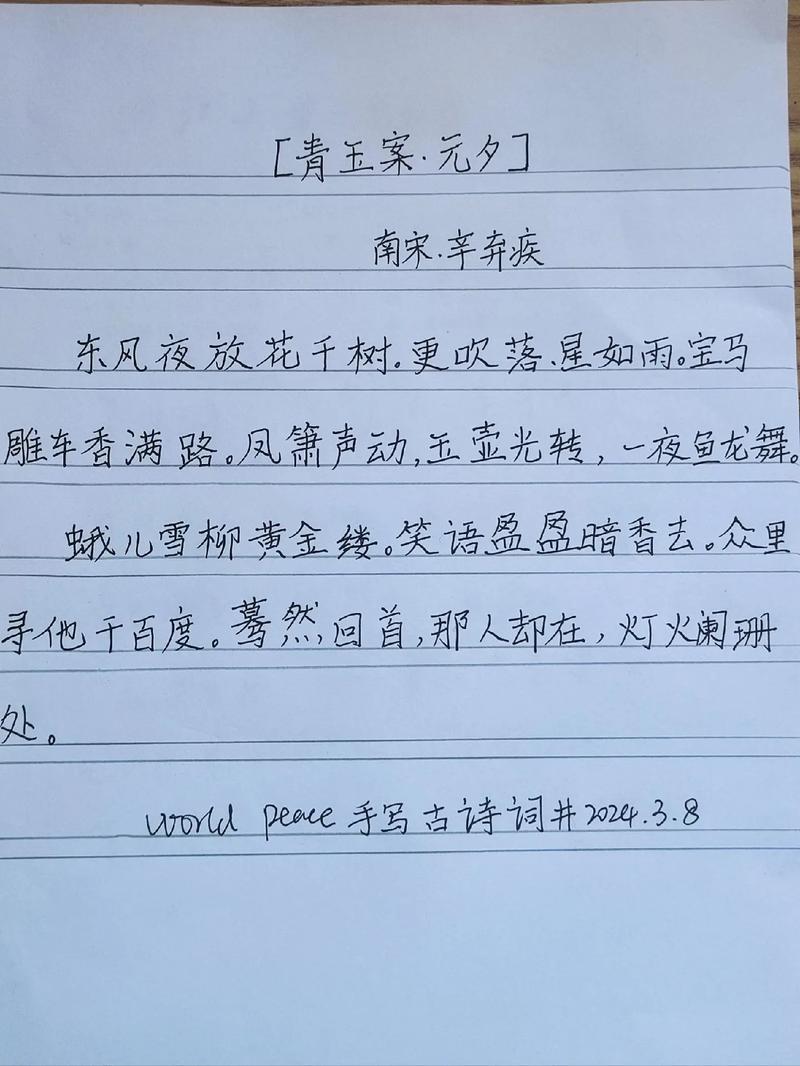 [青玉案·元夕]
南宋·辛弃疾
东风夜放花千树。更吹落、星如雨。宝马
雕车香满路。凤箫声动,玉壶光转,一夜鱼龙舞。
蛾儿雪柳黄金缕。笑语盈盈暗香去。众里
寻他千百度。蓦然回首,那人却在,灯火阑珊
处。
World peace 手写古诗词#2024.3.8